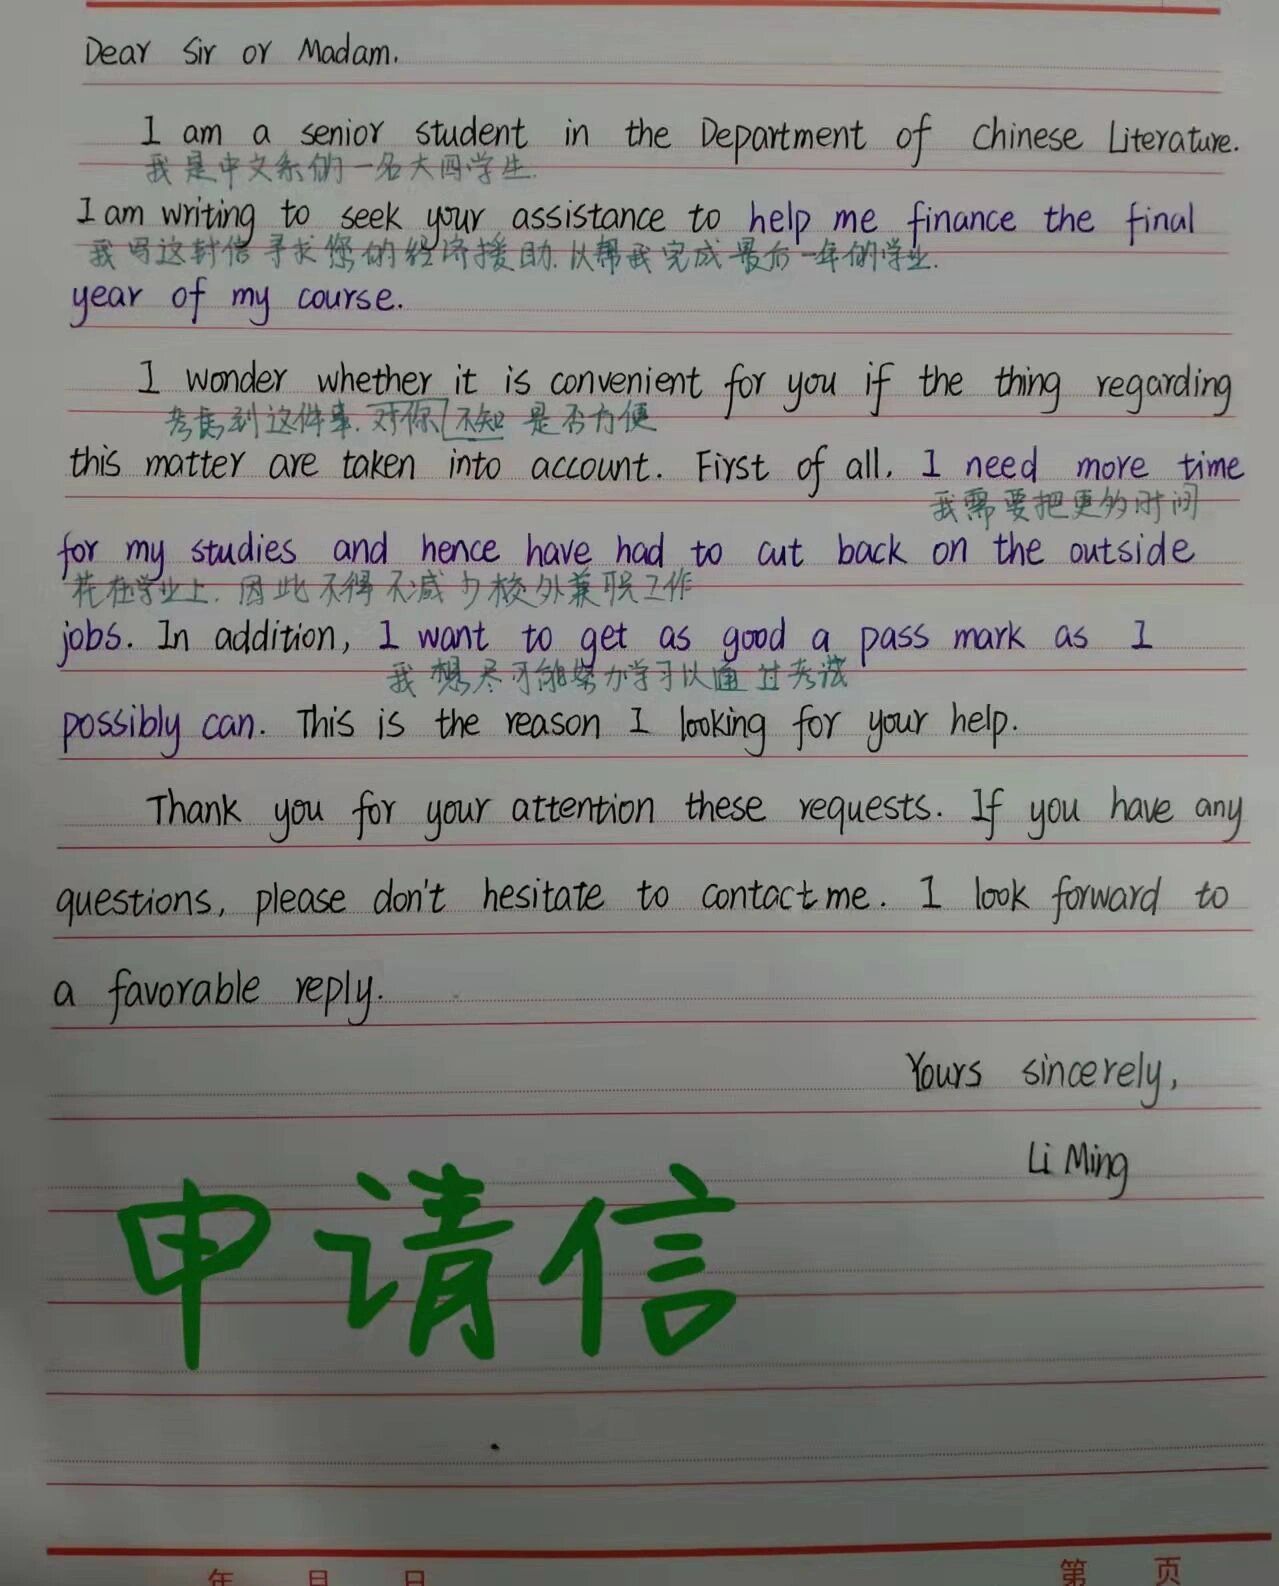 Dear Sir or Madam.
I am a senior student in the Department of Chinese Literature.
我是中文系的一名大四学生.
I am writing to seek your assistance to help me finance the final
我写这封信寻求您的经济援助.以帮我完成最后一年的学业.
year of my course.
I wonder whether it is convenient for you if the thing regarding
考虑到这件事.对你不知是否方便
this matter are taken into account. First of all. I need more time
我需要把更多时间
for my studies and hence have had to cut back on the outside
花在学业上.因此不得不减少校外兼职工作
jobs. In addition, I want to get as good a pass mark as I
我想尽可能努力学习以通过考试
possibly can. This is the reason I looking for your help.
Thank you for your attention these requests. If you have any
questions, please don't hesitate to contact me. I look forward to
a favorable reply.
Yours sincerely,
Li Ming
申请信
年 月 日 第 页